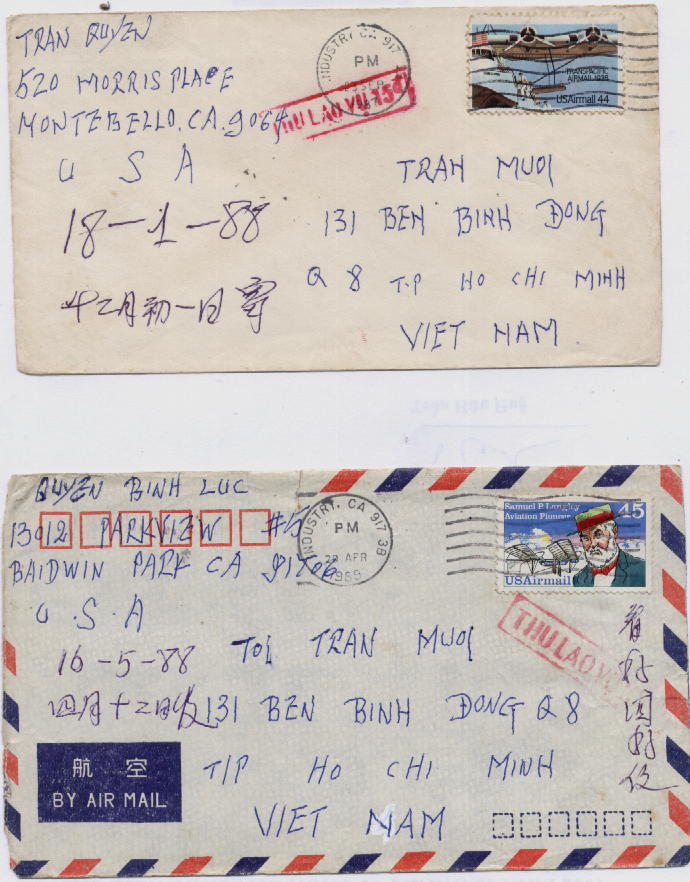 TRAN QUYEN
520 MORRIS PLACE
MONTEBELLO. CA. 9064
U S A
18-1-88
十二月初一日寄
INDUSTRY, CA 917
PM
THU LAO VU 15
TRANSPACIFIC
AIRMAIL 1935
USAirmail 44
TRAN MUOI
131 BEN BINH DONG
Q 8 T.P HO CHI MINH
VIET NAM
QUYEN BINH LUC
13012 PARKVIEW #5
BAIDWIN PARK CA 91706
U.S.A
16-5-88
四月十三日收
INDUSTRY, CA 917 38
PM
APR
1989
Samuel P. Langley
Aviation Pioneer
45
USAirmail
THU LAO
TOI TRAN MUOI
131 BEN BINH DONG Q 8
T/P HO CHI MINH
VIET NAM
航 空
BY AIR MAIL